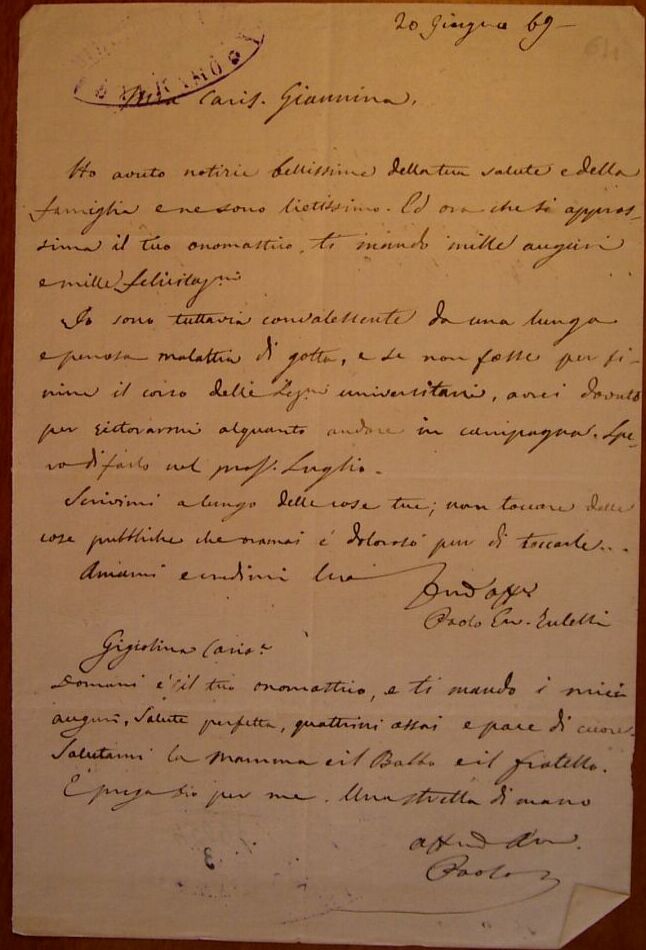 20 Giugno 69
Mia Caris. Giannina,
Ho avuto notizie bellissime della tua salute e della
famiglia e ne sono lietissimo. Ed ora che si appros-
sima il tuo onomastico, ti mando mille auguri
e mille felicitazni
Io sono tuttavia convalescente da una lunga
e penosa malattia di gotta, e se non fosse per fi-
nire il corso delle Lezni universitarie, avrei dovuto
per ristorarmi alquanto andare in campagna. Spe-
ro di farlo nel pross. Luglio.
Scrivimi a lungo delle cose tue; non toccare delle
cose pubbliche che oramai è doloroso pur di toccarle...
Amami e credimi
Paolo Em.
Gigiolina Carisa
Domani è il tuo onomastico, e ti mando i miei
auguri, Salute perfetta, quattrini assai e pace di cuore.
Salutami la Mamma e il Babbo e il fratello.
E prega Dio per me. Una stretta di mano
Paolo
3